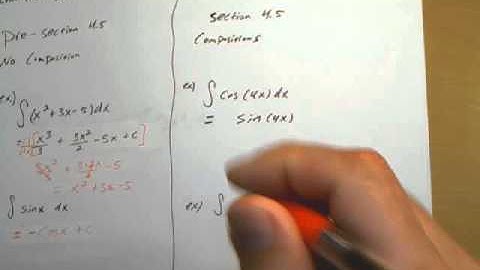 Pre-section 4.5
No Composition
ex)
∫(x²+3x-5)dx
= d/dx[x³/3 + 3x²/2 -5x + C]
3x²/3 + 3·2x/2 -5
= x²+3x-5
∫ sinx dx
= -Cosx + C
Section 4.5
Compositions
ex) ∫ Cos(4x)dx
= sin(4x)
ex) ∫